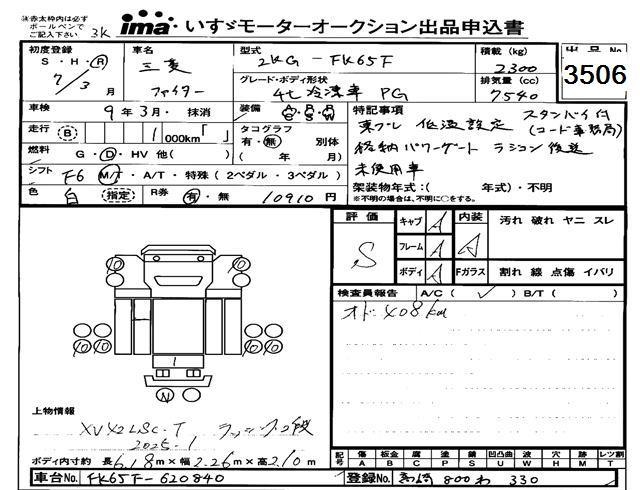 ※赤太枠内は必ず
ボールペンで
ご記入下さい
3K
ima いすゞモーターオークション出品申込書
初度登録
S・H・R
7/3月
車名
三菱
ファイター
型式
2KG-FK65F
グレード・ボディ形状
4t 冷凍車 PG
積載 (kg)
2300
排気量 (cc)
7540
出品No
3506
車検 9年3月・抹消
装備
走行 (B) 1 000km「 」
タコグラフ
有・無 別体
( 年 月)
燃料 G・D・HV 他( )
シフト F6 M/T・A/T・特殊(2ペダル・3ペダル)
色 白 (指定) R券 有・無 10910円
特記事項
東プレ 低温設定 スタンバイ付
(コード事務局)
格納パワーゲート ラジコン後送
未使用車
架装物年式:( 年式)・不明
※不明の場合は、不明に○をする。
評価 S
キャブ A
フレーム A
ボディ A
内装 A
Fガラス
汚れ 破れ ヤニ スレ
割れ 線 点傷 イバリ
検査員報告 A/C( ✓ ) B/T( )
オドー408km
1
N
上物情報
XV42LSC-T ラッシング2段
2025-1
ボディ内寸約 長6.18m×幅2.26m×高2.10m
記号 傷A 板金B 腐C 塗P 鏡S 凹凸曲U 波W 穴H 跡M レツ割T
車台No. FK65F-620840
登録No. 高崎 800 わ 330